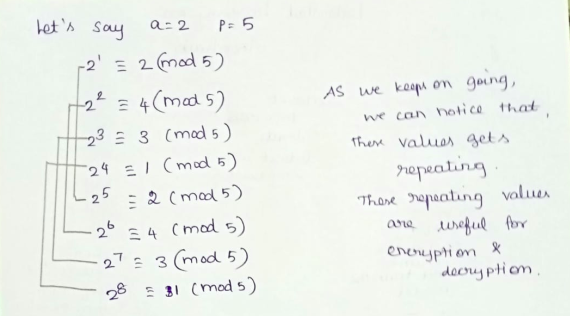 Let's say a=2 p=5
2¹ ≡ 2 (mod 5)
2² ≡ 4 (mod 5)
2³ ≡ 3 (mod 5)
2⁴ ≡ 1 (mod 5)
2⁵ ≡ 2 (mod 5)
2⁶ ≡ 4 (mod 5)
2⁷ ≡ 3 (mod 5)
2⁸ ≡ 1 (mod 5)
AS we keeps on going,
we can notice that,
These values gets
repeating.
These repeating values
are useful for
encryption &
decryption.